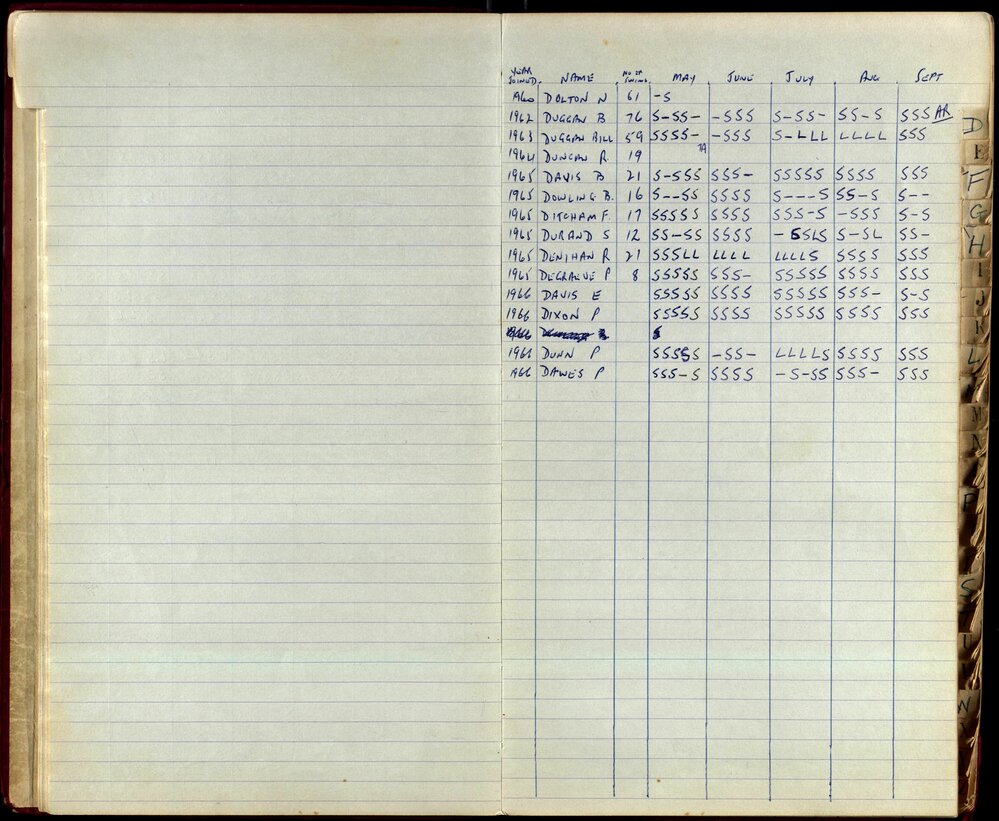 YEAR JOINED NAME NO OF SWIMS MAY JUNE JULY AUG SEPT
1960 DOLTON N 61 -S
1962 DUGGAN B 76 S-SS- -SSS S-SS- SS-S SSS AR
1963 DUGGAN BILL 59 SSSS- -SSS S-LLL LLLL SSS
1964 DUNCAN R. 19
1965 DAVIS B 21 S-SSS SSS- SSSSS SSSS SSS
1965 DOWLING B. 16 S--SS SSSS S----S SS-S S--
1965 DITCHAM F. 17 SSSSS SSSS SSS-S -SSS S-S
1965 DURAND S 12 SS-SS SSSS -SSLS S-SL SS-
1965 DENIHAN R 21 SSSLL LLLL LLLLS SSSS SSS
1965 DEGRAEVE P 8 SSSSS SSS- SSSSS SSSS SSS
1966 DAVIS E SSSSS SSSS SSSSS SSS- S-S
1966 DIXON P SSSSS SSSS SSSSS SSSS SSS
1966 S
1966 DUNN P SSSSS -SS- LLLLS SSSS SSS
1966 DAWES P SSS-S SSSS -S-SS SSS- SSS
D
E
F
G
H
I
J
K
L
M
N
P
S
T
U
W